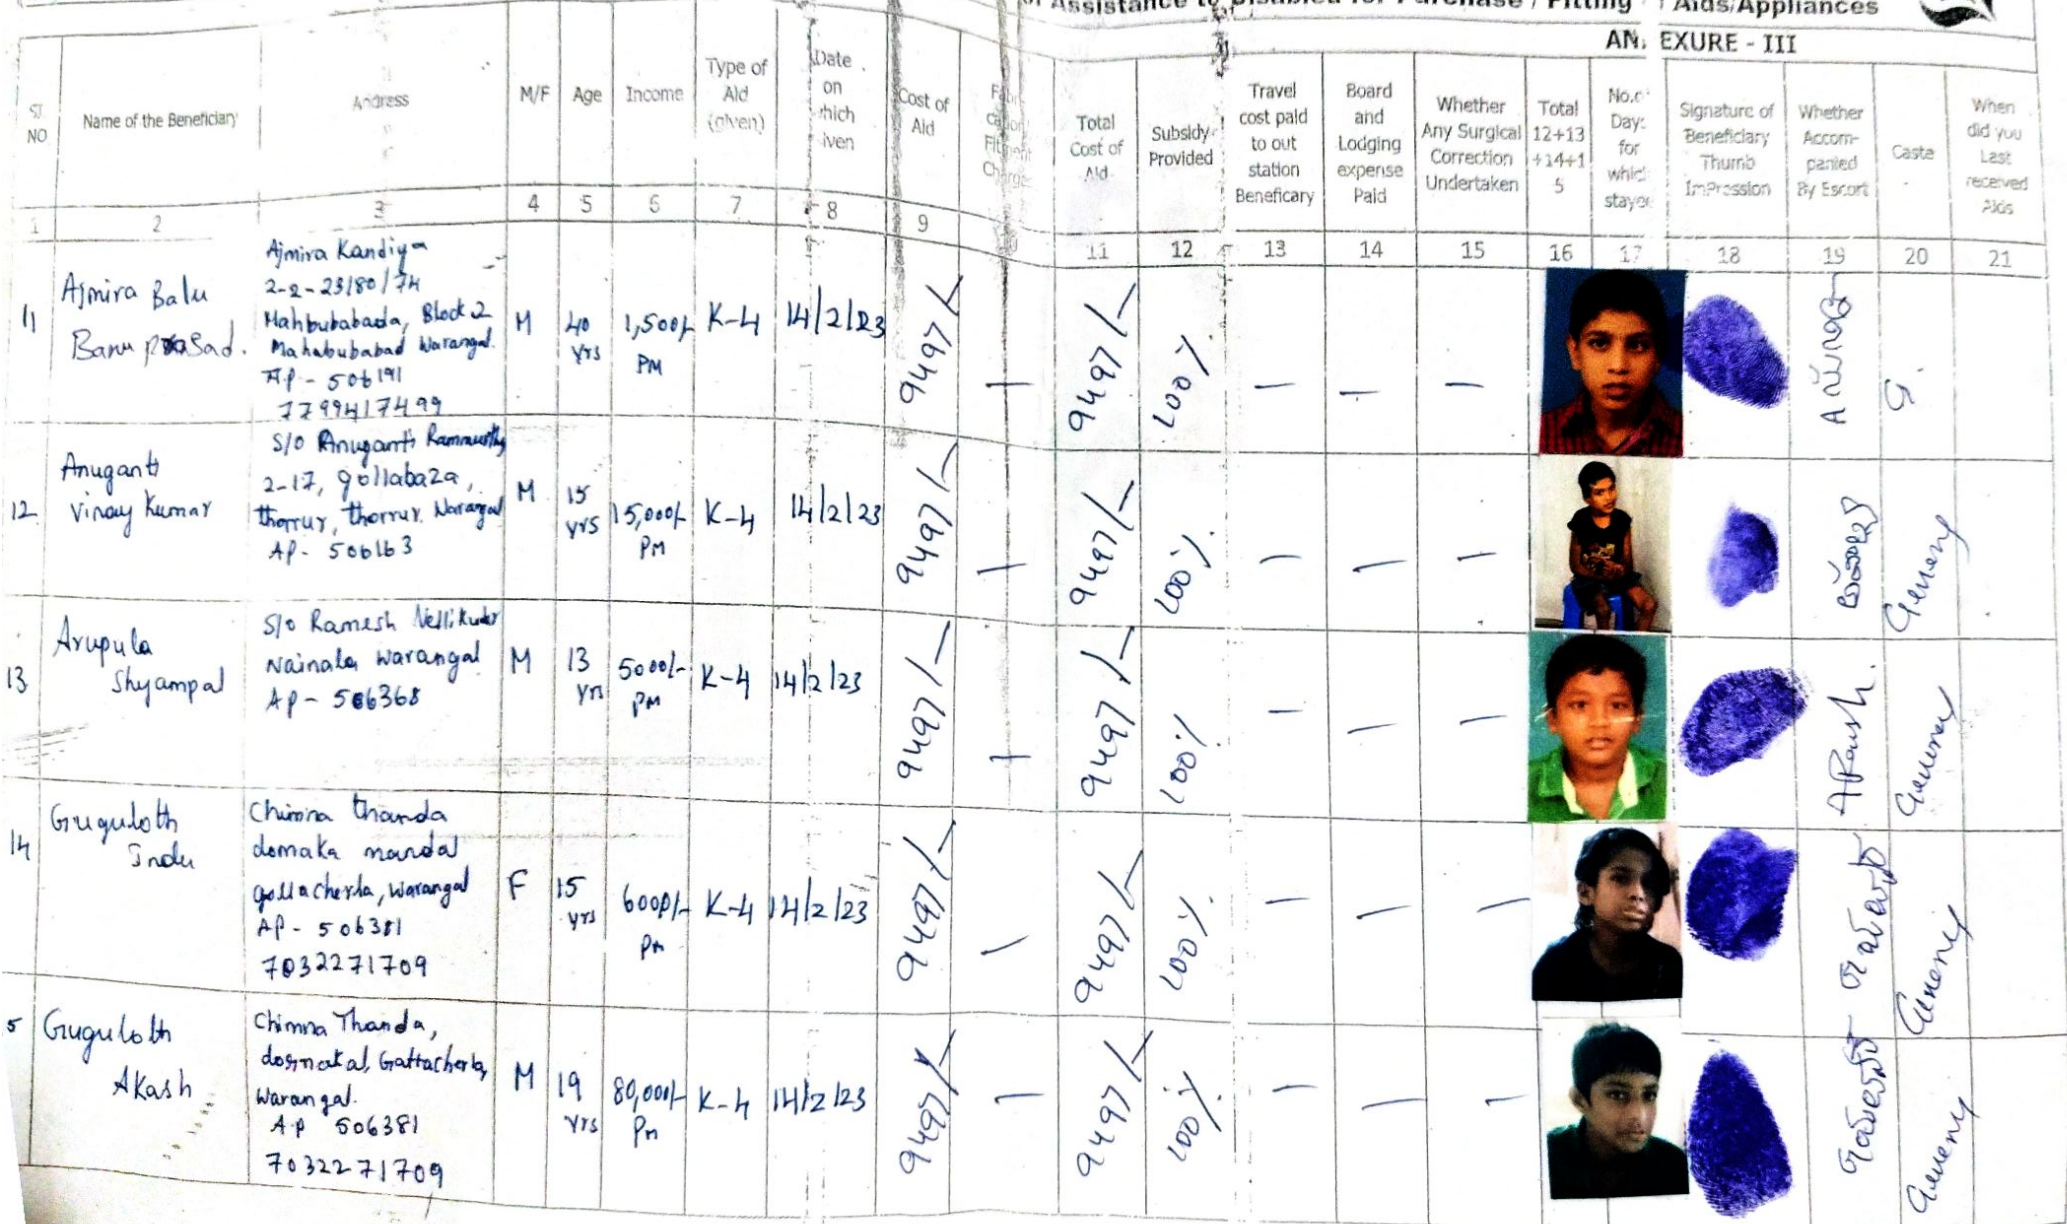 Assistance to Disabled for Purchase / Fitting Aids/Appliances
ANEXURE - III
Sl. NO
Name of the Beneficiary
Address
M/F
Age
Income
Type of Aid (given)
Date on which given
Cost of Aid
Total Cost of Aid
Subsidy Provided
Travel cost paid to out station Beneficary
Board and Lodging expense Paid
Whether Any Surgical Correction Undertaken
Total 12+13+14+15
No.of Days for which stayed
Signature of Beneficiary Thumb Impression
Whether Accompanied By Escort
Caste
When did you Last received Aids
1 2 3 4 5 6 7 8 9 10 11 12 13 14 15 16 17 18 19 20 21
11
Ajmira Balu
Banuprasad.
Ajmira Kandiya
2-2-23/80/74
Mahbubabada, Block 2
Mahabubabad Warangal.
AP - 506191
7799417499
M
40 yrs
1,500/- PM
K-4
14/2/23
9497/-
—
9497/-
100%
— — —
12
Anuganti
Vinay Kumar
S/o Anuganti Rammurthy
2-17, gollabaza,
thorrur, thorrur. Warangal
AP - 506163
M
15 yrs
15,000/- PM
K-4
14/2/23
9497/-
—
9497/-
100%
— — —
13
Arupula
Shyampal
S/o Ramesh Nellikuder
Nainala Warangal
AP - 506368
M
13 yrs
5000/- PM
K-4
14/2/23
9497/-
—
9497/-
100%
— — —
14
Guguloth
Indu
Chimna thanda
domaka mandal
gollacherla, Warangal
AP - 506381
7032271709
F
15 yrs
6000/- Pm
K-4
14/2/23
9497/-
—
9497/-
100%
— — —
5
Guguloth
Akash
Chimna Thanda,
dornakal, Gattacherla,
Warangal.
AP 506381
7032271709
M
19 yrs
80,000/- Pm
K-4
14/2/23
9497/-
—
9497/-
100%
— — —